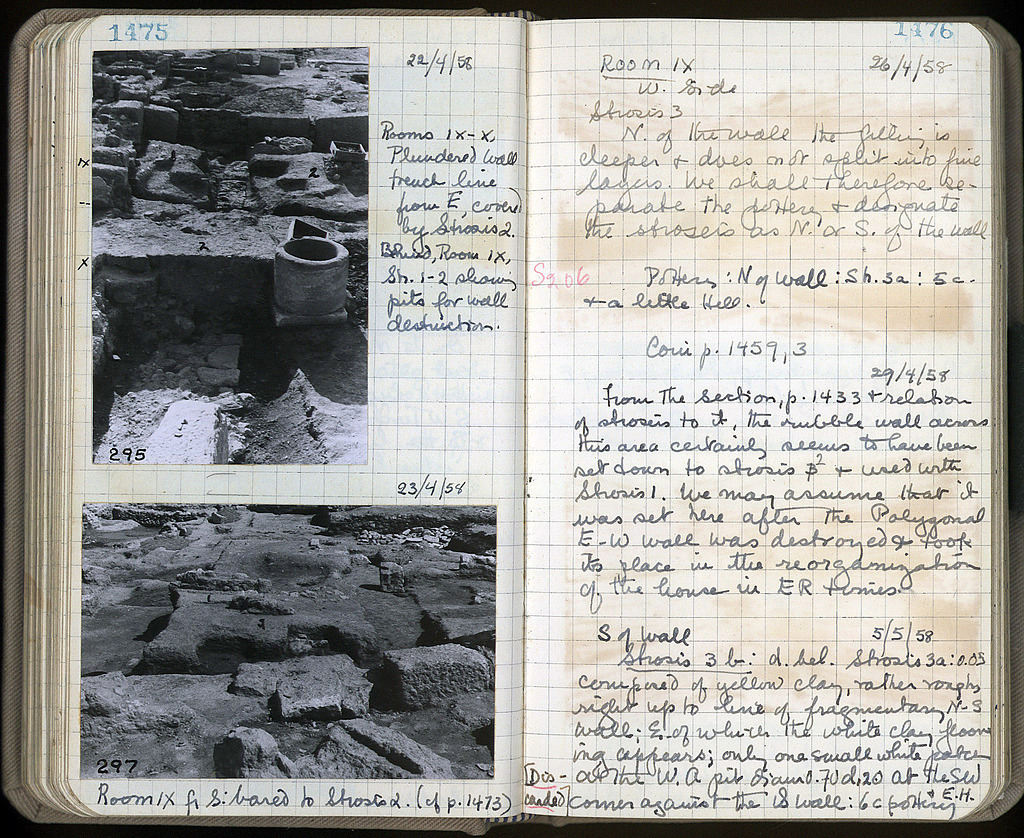 1475
22/4/58
Rooms IX-X,
Plundered wall
trench line
from E, covered
by Strosis 2.
Room IX,
Str. 1-2 showing
pits for wall
destruction.
IX
X
2
2
295
23/4/58
297
Room IX fr S: bared to Strosis 2. (cf p. 1473)
1476
Room IX 26/4/58
W. Side
Strosis 3
N. of the wall the filling is
deeper & does not split into fine
layers. We shall therefore se-
parate the pottery & designate
the stroseis as N. or S. of the wall
S206
Pottery: N of wall: Str. 3a: 5c.
& a little Hell.
Coin p. 1459, 3
29/4/58
From the section, p. 1433 & relation
of stroseis to it, the rubble wall across
this area certainly seems to have been
set down to strosis 2 & used with
Strosis 1. We may assume that it
was set here after the Polygonal
E-W wall was destroyed & took
its place in the reorganization
of the house in ER times.
S of wall 5/5/58
Strosis 3b: d. bel. Strosis 3a: 0.05
composed of yellow clay, rather rough,
right up to line of fragmentary N-S
wall; E. of which the white clay floor-
ing appears; only one small white patch
at the W. A pit, diam 0.70 d. 20 at the SW
corner against the S wall: 6c pottery
& E.H.
[Dis-
carded]